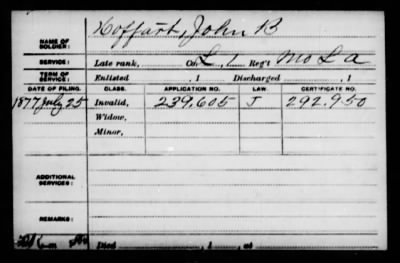 NAME OF SOLDIER: Hoffart, John B
SERVICE: Late rank, Co. L, 1 Reg't Mo L A
TERM OF SERVICE: Enlisted , 1 Discharged , 1
DATE OF FILING. CLASS. APPLICATION NO. LAW. CERTIFICATE NO.
1877 July 25 Invalid, 239.605 J 292.950
Widow,
Minor,
ADDITIONAL SERVICES:
REMARKS:
Died , 1 , at